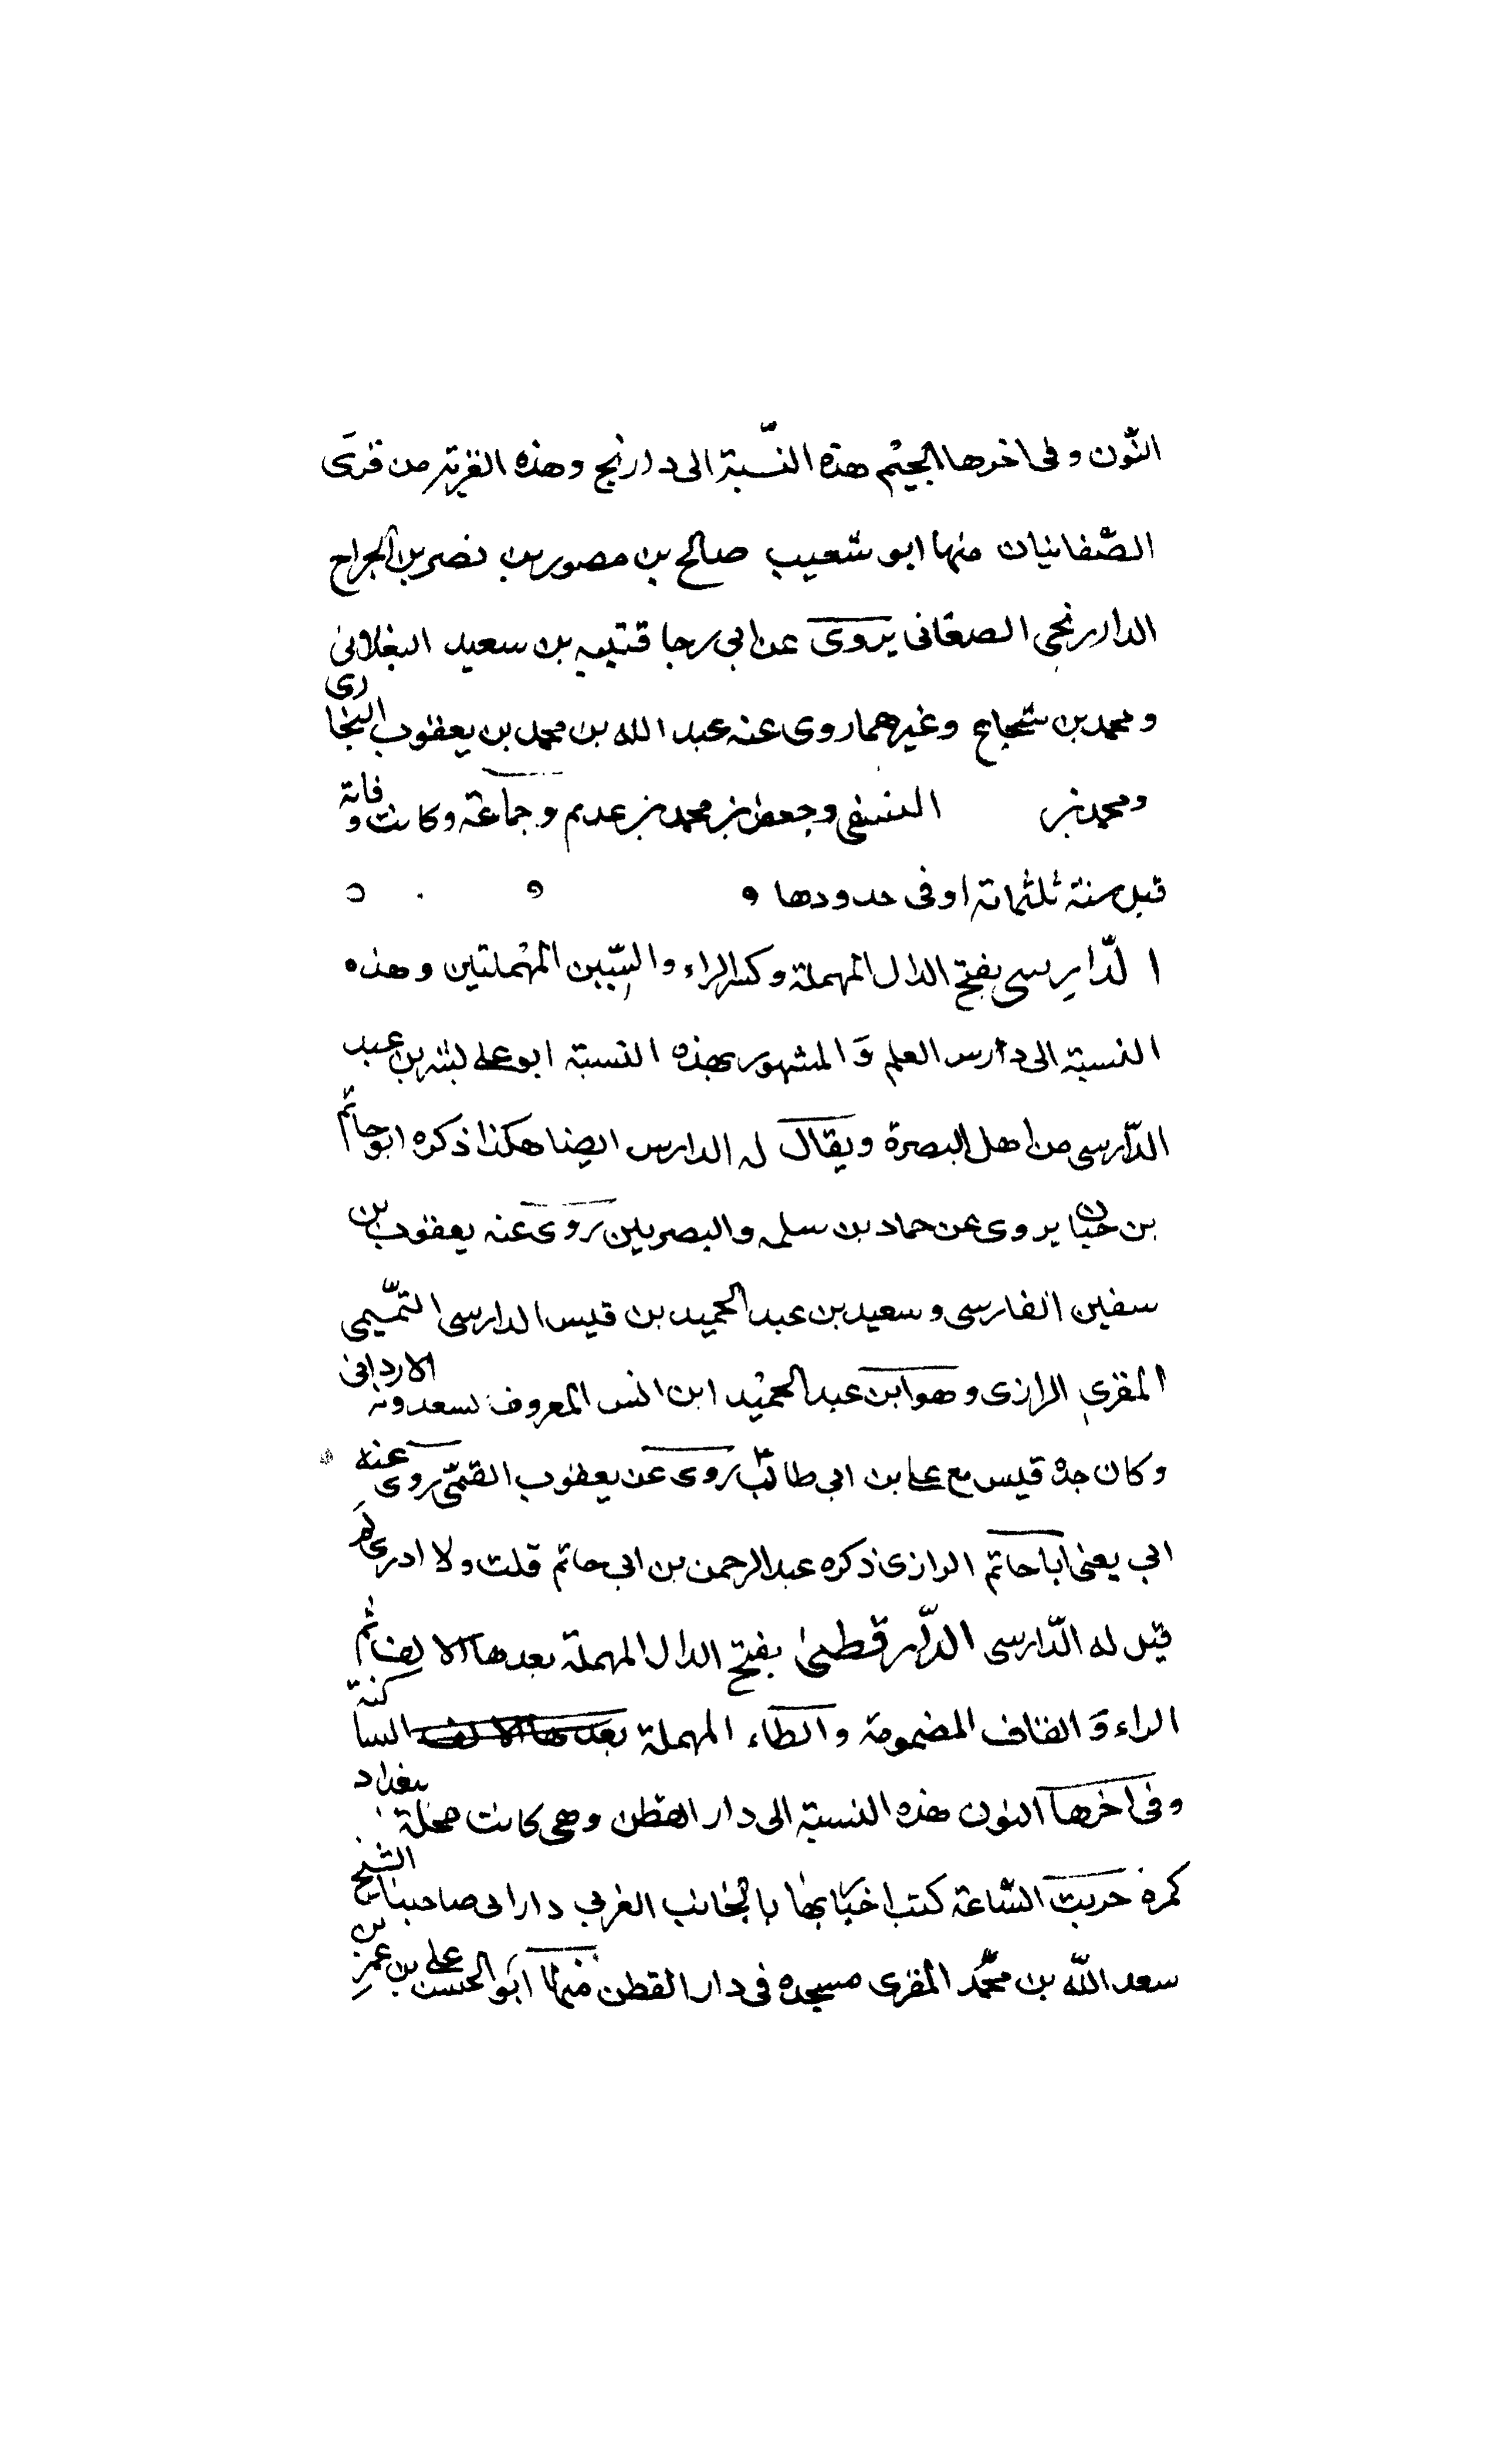 النّون وفى اخرها الجيم هذه النّسبة الى دارنج وهذه القرية من قرى
الصّغانيان منها ابو شعيب صالح بن مصور بن نصر بن الجراح
الدارنجى الصغانى يروى عن ابى رجا قتيبه بن سعيد البغلانى
ومحمد بن شجاع وغيرهما روى عنه عبد الله بن محمد بن يعقوب البخارى
ومحمد بن النسفى وجعفر بن محمد بن عديم وجماعة وكانت وفاته
قبل سنة ثلثمائة او فى حدودها
الدّارِسى بفتح الدال المهملة وكسر الراء والسّين المهملتين وهذه
النسبة الى دارس العلم وَالمشهور بهذه النسبة ابو على بشر بن عبد
الدّارسى من اهل البصرة ويقال له الدارس ايضا هكذا ذكره ابو حاتم
بن حبان يروى عن حماد بن سلمه والبصريين روى عنه يعقوب بن
سفين الفارسى وسعيد بن عبد الحميد بن قيس الدارسى التّميمى
المقرى الرازى وهو ابن عبد الحميد ابن انس المعروف بسعدونه الاردانى
وكان جدّ قيس مع على بن ابى طالب روى عن يعقوب القمّى روى عنه
ابى يعنى ابا حاتم الرازى ذكره عبد الرحمن بن ابى حاتم قلت ولا ادرى لم
قيل له الدّارسى الدّارقطنى بفتح الدال المهملة بعدها الالف ثم
الراء وَالقاف المضمومة والطاء المهملة بعدها الالف الساكنة
وفى اخرها النون هذه النسبة الى دار القطن وهى كانت محلة ببغداد
كبيرة خربت السّاعة كنت اجتاز بها بالجانب الغربى دارانى صاحبنا الشيخ
سعد اللّه بن محمّد المقرى مسجده فى دار القطن منها ابو الحسن على بن عمر بن